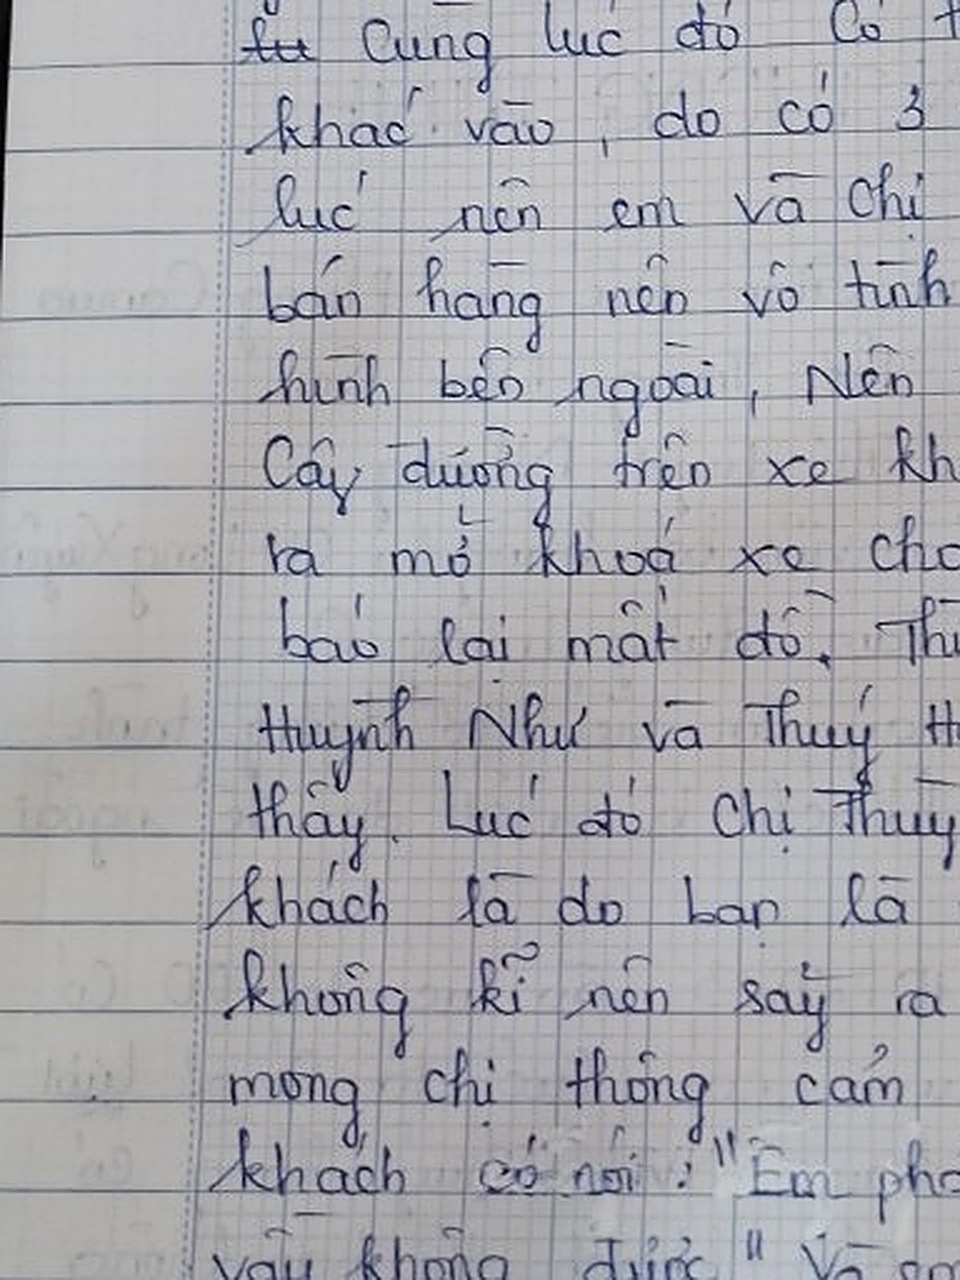 cùng lúc đó có
khác vào, do có 3
lúc nên em và chị
bán hàng nên vô tình
hình bên ngoài, Nên
Cây dường trên xe
ra mở khoá xe cho
báo lại mất đồ. Thì
Huỳnh Như và Thuý
thấy. Lúc đó chị Thuỳ
khách là do bạn là
không kĩ nên sảy ra
mong chị thông cảm
khách có nói: "Em
vậy không được" Và